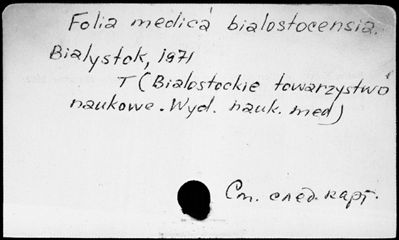 Folia medica bialostocensia.
Bialystok, 1971
T (Bialostockie towarzystwo
naukowe. Wyd. nauk. med)
См. след. карт.